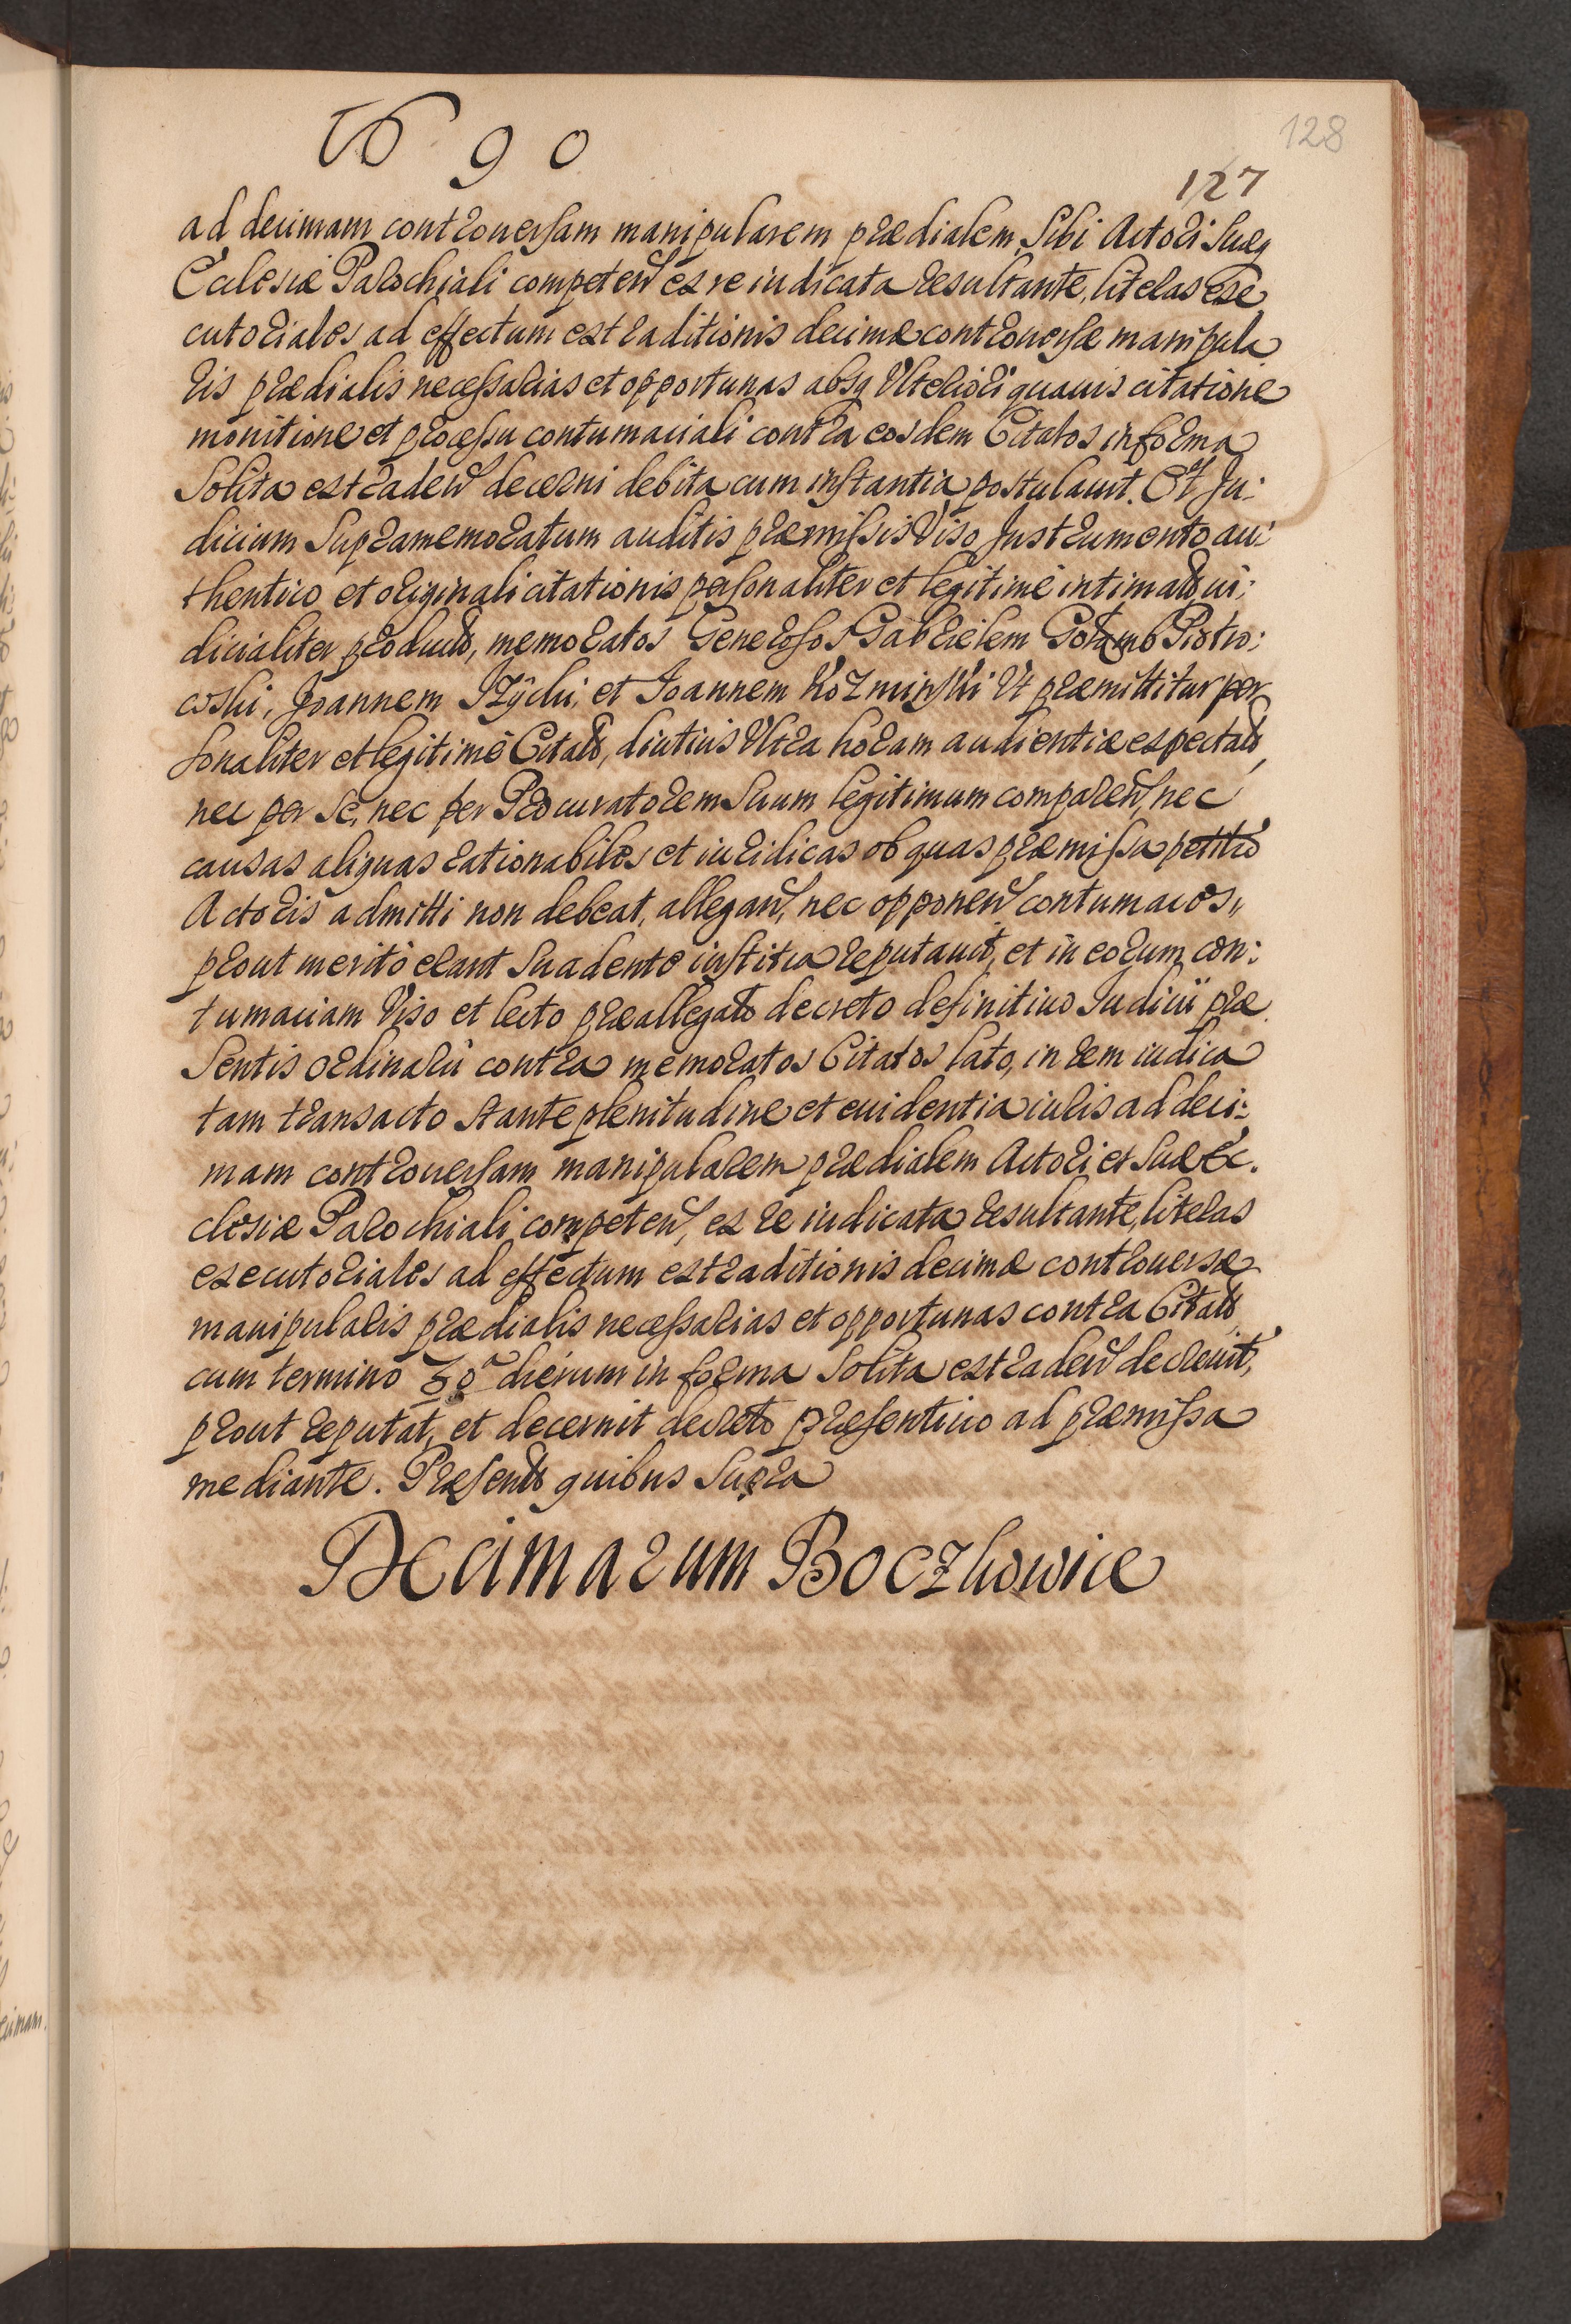 128
90
127
ad decimam controuersam manipularem prædialem Sibi Actori Suæq
Ecclesiæ Parochiali competen ex re iudicata resultante, literas Exe
cutoriales ad effectum extraditionis decimæ controuersæ manipula
ris prædialis necessarias et opportunas absq Vlteriori quauis citatione
monitione et processu contumaciali contra eosdem Citatos in forma
Solita extraden decerni debita cum instantia postulauit. Et Ju:
dicium Supramemoratum auditis præmissis Viso Instrumento au:
thentico et originali citationis personaliter et legitimè intimat iu:
dicialiter product, memoratos Generosos Gabrielem Golamb Piotro:
coski, Joannem Szychi, et Joannem Kozminski Vt præmittitur per
sonaliter et legitimè Citat, diutius Vltra horam audientiæ expectat,
nec per Se, nec per Procuratorem Suum legitimum comparen, nec
causas aliquas rationabiles et iuridicas ob quas præmissa petitio
Actoris admitti non debeat, allegan, nec opponen contumaces,,
prout meritò erant Suadente iustitia reputauit, et in eorum con:
tumaciam Viso et lecto præallegato decreto definitiuo Judicii præ
sentis ordinarii contra memoratos Citatos lato, in rem iudica
tam transacto stante plenitudine et euidentia iuris ad deci:
mam controuersam manipularem prædialem Actori et Suæ Ec.
clesiæ Parochiali competen, ex re iudicata resultante, literas
executoriales ad effectum extraditionis decimæ controuersæ
manipularis prædialis necessarias et opportunas contra Citat
cum termino 30 dierum in forma Solita extraden decreuit,
prout reputat, et decernit decreto præsenti suo ad præmissa
mediante. Præsent quibus Supra
Decimarum Boczkowice